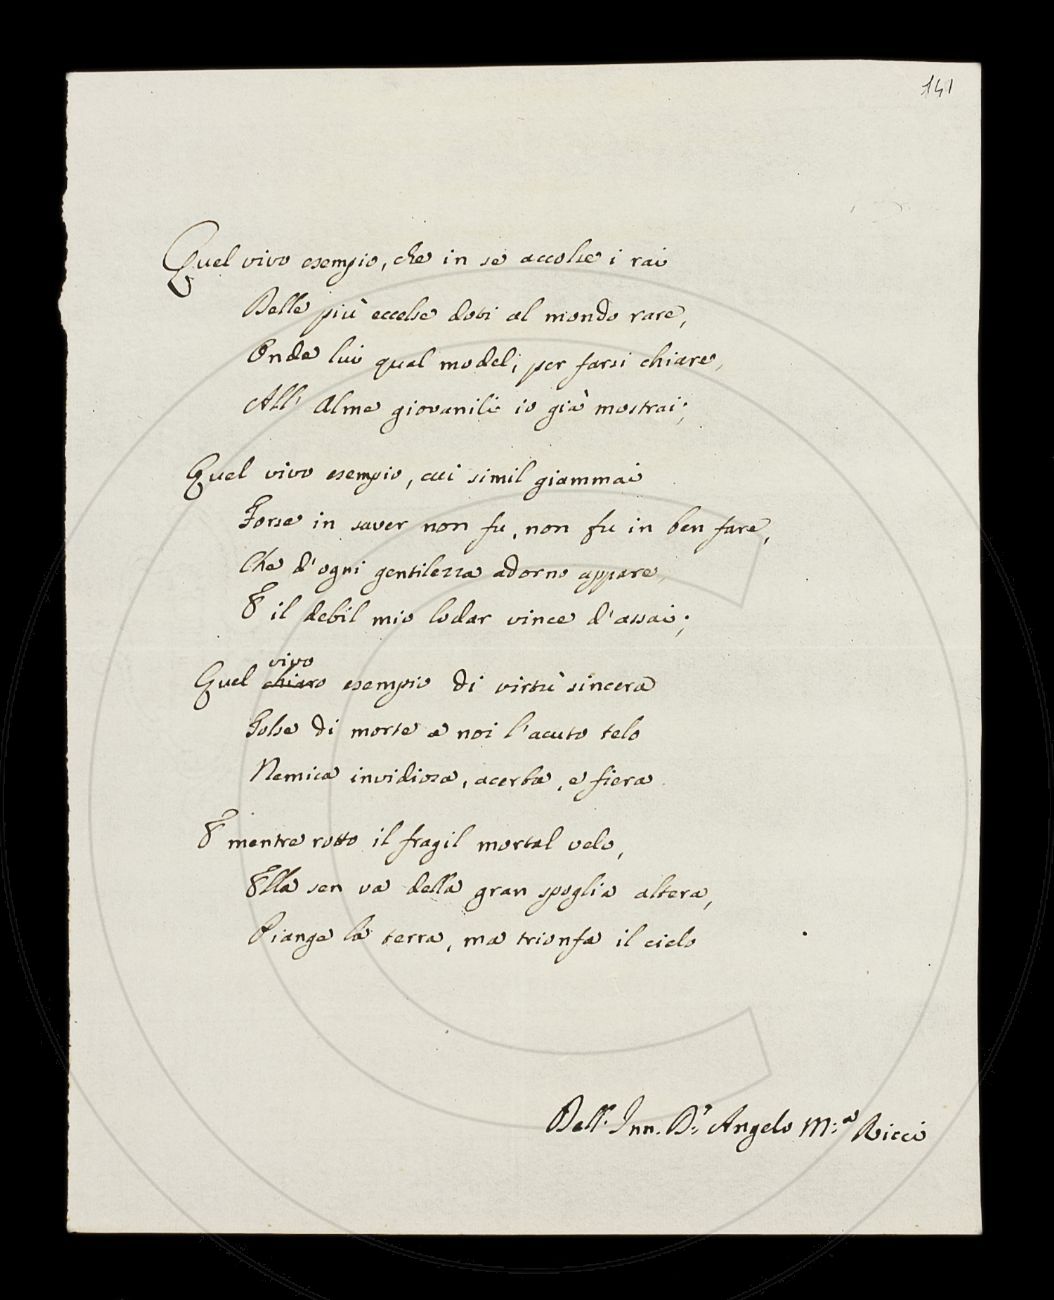 141
Quel vivo esempio, che in se accolse i rai
Delle più eccelse doti al mondo rare,
Onde lui qual model, per farsi chiare,
All' Alme giovanili io già mostrai;
Quel vivo esempio, cui simil giammai
Forse in saver non fu, non fu in ben fare,
Che d'ogni gentilezza adorno appare,
E il debil mio lodar vince d'assai;
vivo
Quel chiaro esempio di virtù sincera
Tolse di morte a noi l'acuto telo
Nemica invidiosa, acerba, e fiera.
E mentre rotto il fragil mortal velo,
Ella sen va della gran spoglia altera,
Piange la terra, ma trionfa il cielo
Dell'. Inn. D.r Angelo M:a Ricci